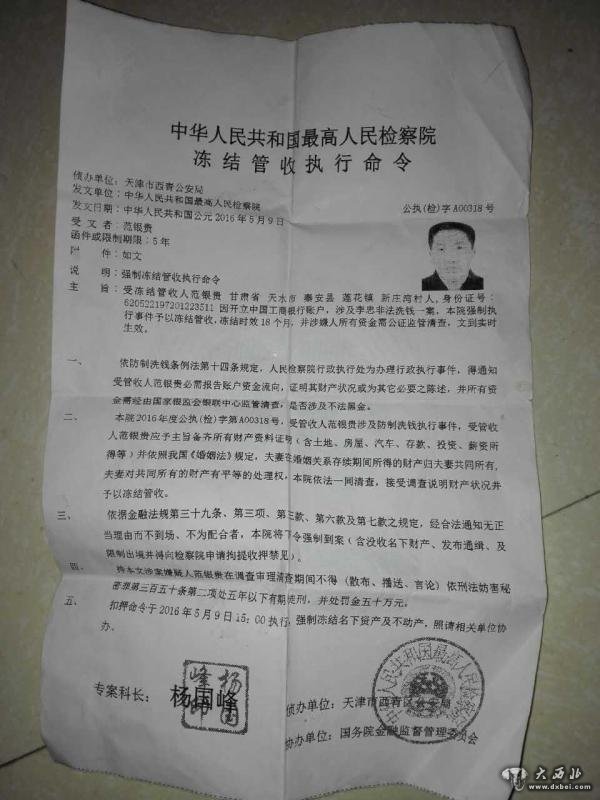 中华人民共和国最高人民检察院
冻结管收执行命令
侦办单位：天津市西青公安局
发文单位：中华人民共和国最高人民检察院
发文日期：中华人民共和国公元 2016 年 5 月 9 日
公执(检)字 A00318 号
受 文 者：范银贵
函件或限制期限：5 年
附 件：如文
说 明：强制冻结管收执行命令
主 旨：受冻结管收人范银贵 甘肃省 天水市 秦安县 莲花镇 新庄湾村人，身份证号：
620522197201223511 因开立中国工商银行账户，涉及李忠非法洗钱一案，本院强制执
行事件予以冻结管收，冻结时效 18 个月，并涉嫌人所有资金需公证监管清查，文到实时
生效。
一、 依防制洗钱条例法第十四条规定，人民检察院行政执行处为办理行政执行事件，得通知
受管收人范银贵必需报告账户资金流向，证明其财产状况或为其它必要之陈述，并所有资
金需经由国家银监会银联中心监管清查，是否涉及不法黑金。
二、 本院 2016 年度公执(检)字第 A00318 号，受管收人范银贵涉及防制洗钱执行事件，受管收
人范银贵应予主旨备齐所有财产资料证明（含土地、房屋、汽车、存款、投资、薪资所
得等）并依照我国《婚姻法》规定，夫妻在婚姻关系存续期间所得的财产归夫妻共同所有，
夫妻对共同所有的财产有平等的处理权，本院依法一同清查，接受调查说明财产状况并
予以冻结管收。
三、 依据金融法规第三十九条、第三项、第三款、第六款及第七款之规定，经合法通知无正
当理由而不到场、不为配合者，本院将下令强制到案（含没收名下财产、发布通缉、及
限制出境并得向检察院申请拘提收押禁见）。
四、 持本文涉案嫌疑人范银贵在调查审理清查期间不得（散布、播送、言论）依刑法妨害秘
密罪第三百五十条第二项处五年以下有期徒刑，并处罚金五十万元。
五、 扣押命令于 2016 年 5 月 9 日 15：00 执行，强制冻结名下资产及不动产，照请相关单位协
办。
专案科长： 杨国峰
杨国峰印
侦办单位：天津市西青区公安局
协办单位：国务院金融监督管理委员会
中华人民共和国最高人民检察院
大西北
www.dxbei.com